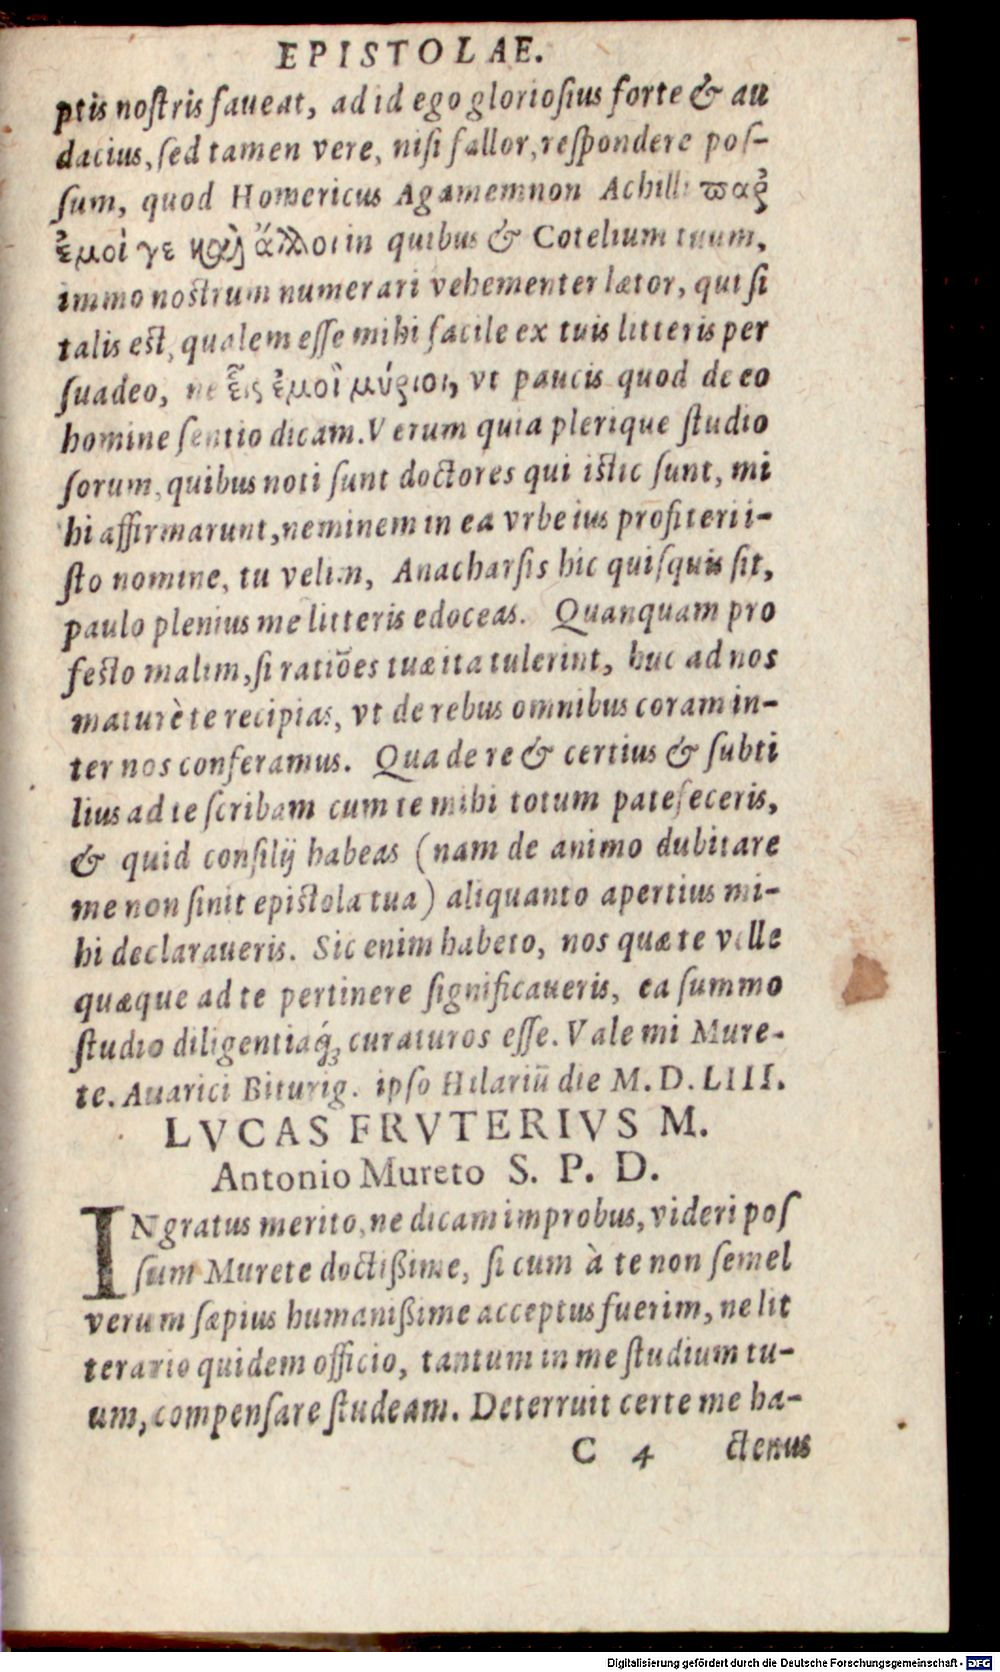 EPISTOLAE.
ptis nostris faueat, ad id ego gloriosius forte & au
dacius, sed tamen vere, nisi fallor, respondere pos-
sum, quod Homericus Agamemnon Achilli παρ᾽
ἐμοί γε καὶ ἄλλοι in quibus & Cotelium tuum,
immo nostrum numerari vehementer lætor, qui si
talis est, qualem esse mihi facile ex tuis litteris per
suadeo, ne εἷς ἐμοὶ μύριοι, vt paucis quod de eo
homine sentio dicam. Verum quia plerique studio
sorum, quibus noti sunt doctores qui istic sunt, mi
hi affirmarunt, neminem in ea vrbe ius profiteri i-
sto nomine, tu velim, Anacharsis hic quisquis sit,
paulo plenius me litteris edoceas. Quanquam pro
fecto malim, si ratiões tuæ ita tulerint, huc ad nos
maturè te recipias, vt de rebus omnibus coram in-
ter nos conferamus. Qua de re & certius & subti
lius ad te scribam cum te mihi totum patefeceris,
& quid consilij habeas (nam de animo dubitare
me non sinit epistola tua) aliquanto apertius mi-
hi declaraueris. Sic enim habeto, nos quæ te velle
quæque ad te pertinere significaueris, ea summo
studio diligentiaq́; curaturos esse. Vale mi Mure-
te. Auarici Biturig. ipso Hilariū die M.D.LIII.
LVCAS FRVTERIVS M.
Antonio Mureto S. P. D.
INgratus merito, ne dicam improbus, videri pos
sum Murete doctißime, si cum à te non semel
verum sæpius humanißime acceptus fuerim, ne lit
terario quidem officio, tantum in me studium tu-
um, compensare studeam. Deterruit certe me ha-
C 4 ctenus
Digitalisierung gefördert durch die Deutsche Forschungsgemeinschaft - DFG